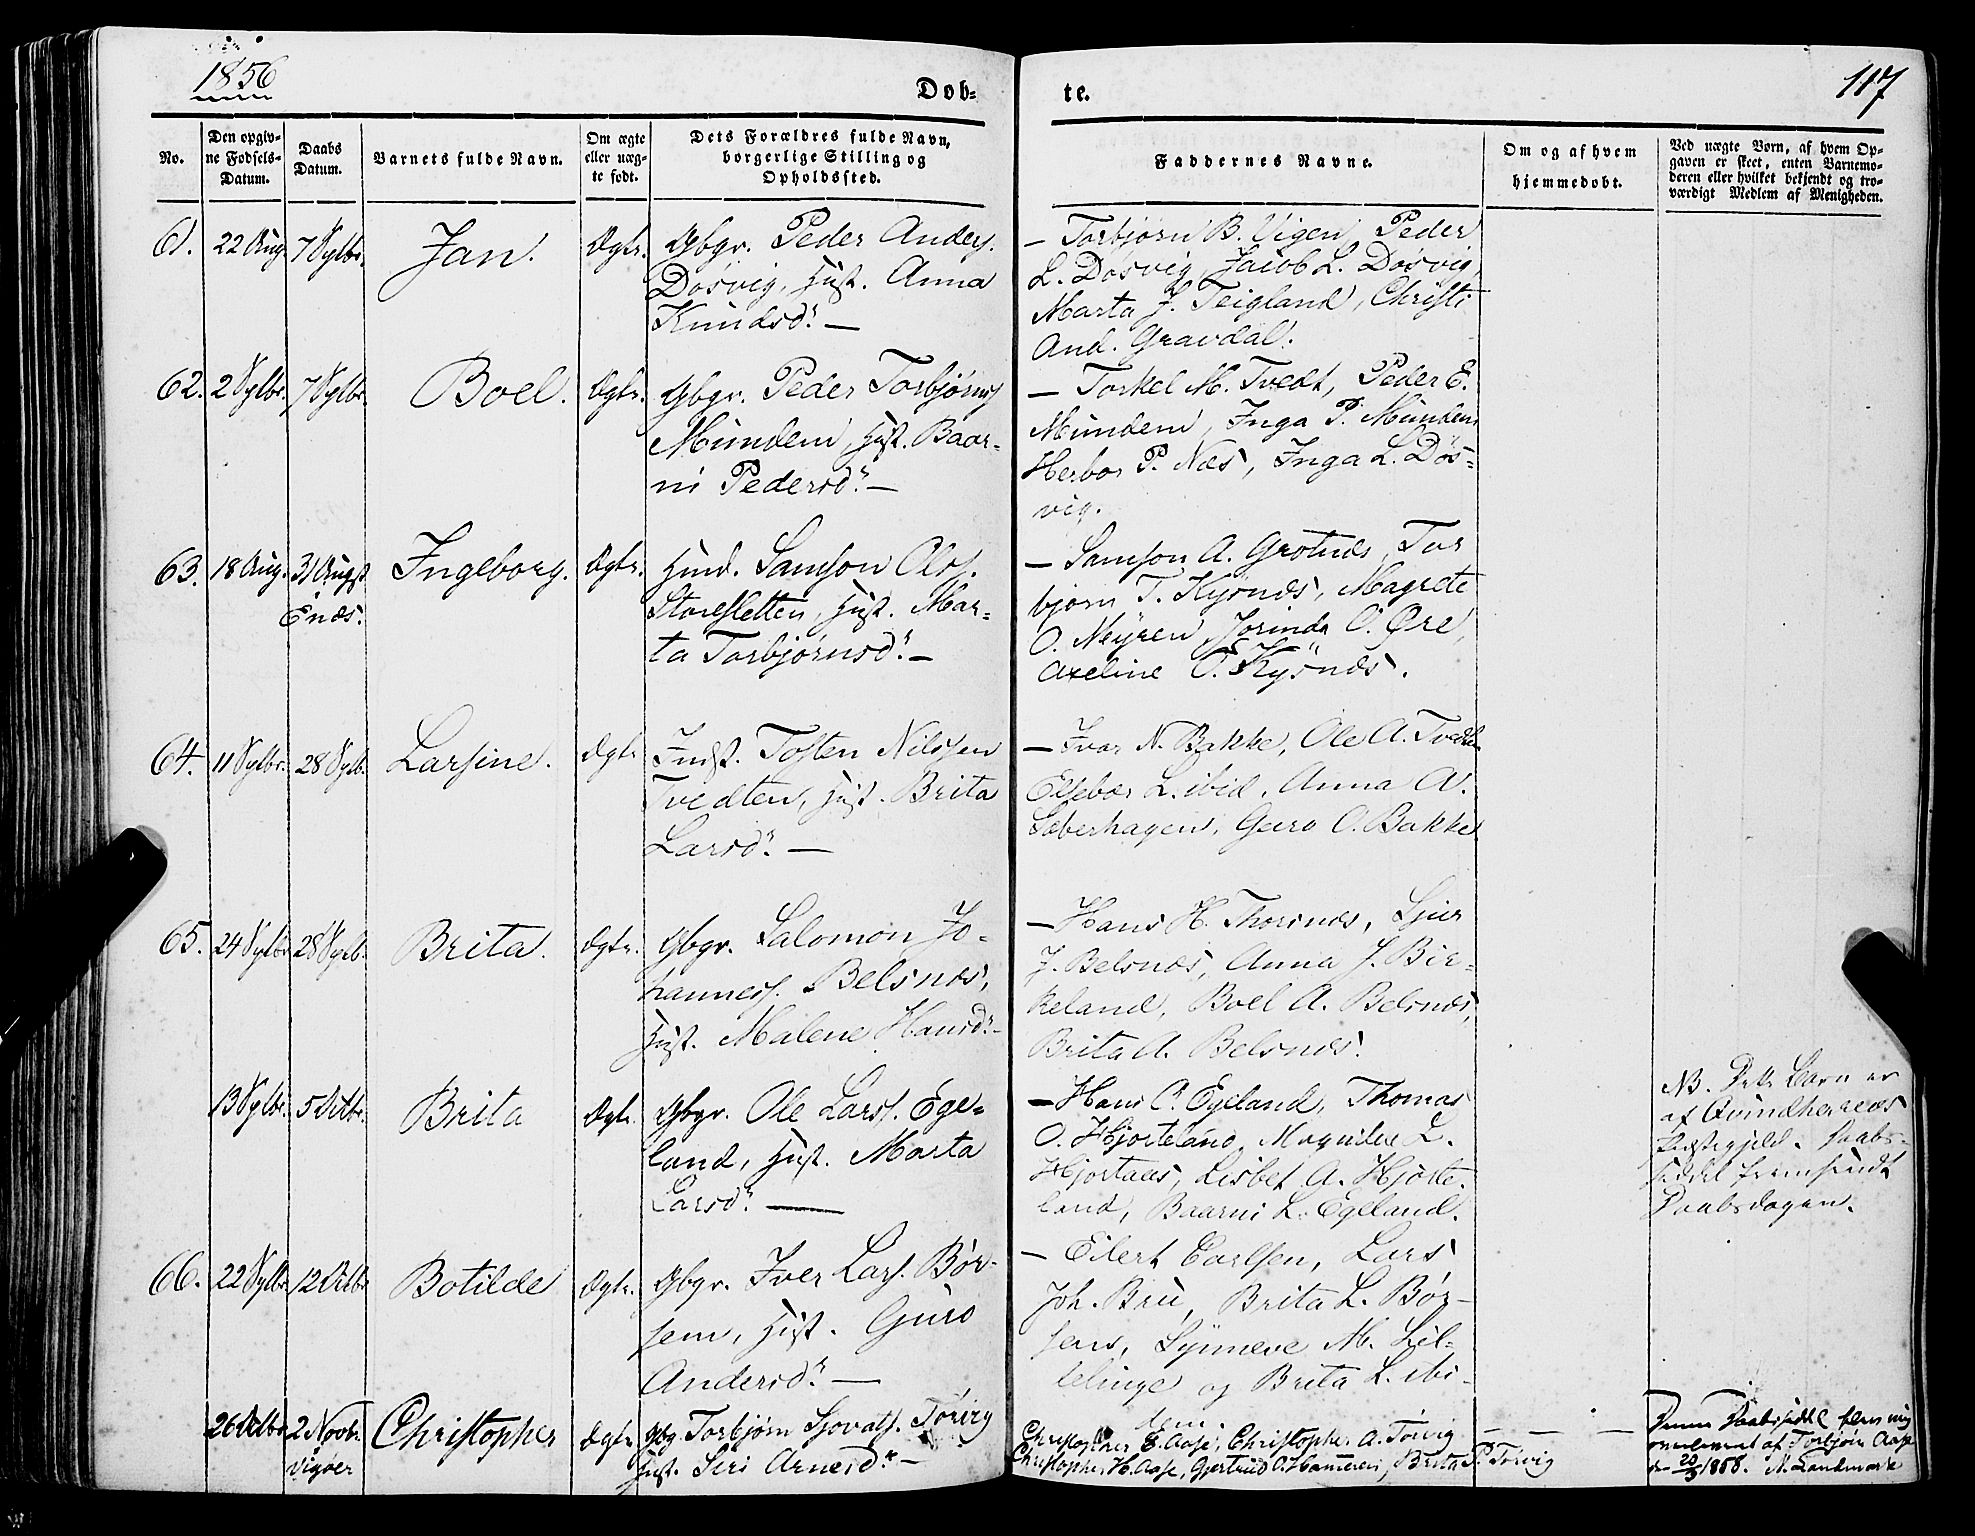 1856
Døb-
te.
117
No.
Den opgiv-
ne Fødsels-
Datum.
Daabs
Datum.
Barnets fulde Navn.
Om ægte
eller uæg-
te født.
Dets Forældres fulde Navn,
borgerlige Stilling og
Opholdssted.
Faddernes Navne.
Om og af hvem
hjemmedøbt.
Ved uægte Børn, af hvem Op-
gaven er skeet, enten Barnemo-
deren eller hvilket bekjendt og tro-
værdigt Medlem af Menigheden.
61. 22 Aug. 7 Sptbr. Jan. Ægte. Gbgr. Peder Anders.
Døsvig, Hust. Anna
Knudsd. —
— Torbjørn B. Vigen, Peder
L. Døsvig, Jacob L. Døsvig,
Marta J. Teigland, Christi
And. Gravdal.
62. 2 Sptbr. 7 Sptbr. Boel. Ægte. Gbgr. Peder Torbjørns.
Mundem, Hust. Baar-
ni Pedersd. —
— Torkel M. Tvedt, Peder E.
Mundem, Inga P. Mundem
Herbor P. Næs, Inga L. Døs-
vig.
63. 18 Aug. 31 Augst. Ingeborg. Ægte. Huusm. Samson Ols.
Enæs.
Storesletten, Hust. Mar-
ta Torbjørnsd. —
— Samson A. Grotnæs, Tor
bjørn T. Kysnæs, Magrete
O. Myren, Jorinda O. Øre,
Axeline O. Kysnæs.
64. 11 Sptbr. 28 Sptb. Larsine. Ægte Indst. Tosten Nilssen
Tvedten, Hust. Brita
Larsd. —
— Ivar N. Bakke, Ole A. Tvedten
Elsebær L. ibid, Anna A.
Sæberhagen, Guro O. Bakke
65. 24 Sptbr. 28 Sptb. Brita. Ægte. Gbgr. Salomon Jo-
hanness. Belsnæs,
Hust. Malene Hansd. —
— Hans H. Thorsnæs, Sjur
J. Belsnæs, Anna J. Bir-
keland, Boel A. Belsnæs,
Brita A. Belsnæs.
13 Sptbr. 5 Octbr. Brita Ægte. Gbgr. Ole Larss. Ege-
land, Hust. Marta
Larsd. —
— Hans O. Egeland, Thomas
O. Hjorteland, Magnilde L.
Hjortaas, Lisbet A. Hjorte-
land, Baarni L. Egeland.
NB. Dette Barn er
af Qvindherreds
Præstegjeld. Daabs-
seddel fremsendt
Daabsdagen.
66. 22 Sptbr. 12 Octbr Botilde Ægte. Gbgr. Iver Lars. Bør-
sem, Hust. Guro
Andersd. —
— Eilert Carlsen, Lars
Joh. Bru, Brita L. Bør-
sem, Synneve M. Lil-
lelinge og Brita L. ibi-
dem.
26 Octbr 2 Novbr. Christopher Ægte Gbg. Torbjørn Sjovats. Tørvig
Vigøer
Hust. Siri Arnesd. —
Christopher E. Aase, Christopher A. Tørvig
Christopher H. Aase, Gjertrud O. Hammeren, Brita P. Tørvig
— — —
Denne Daabsseddel først mig
overleveret af Torbjørn Aase
d. 20/3 1858. N. Landmark